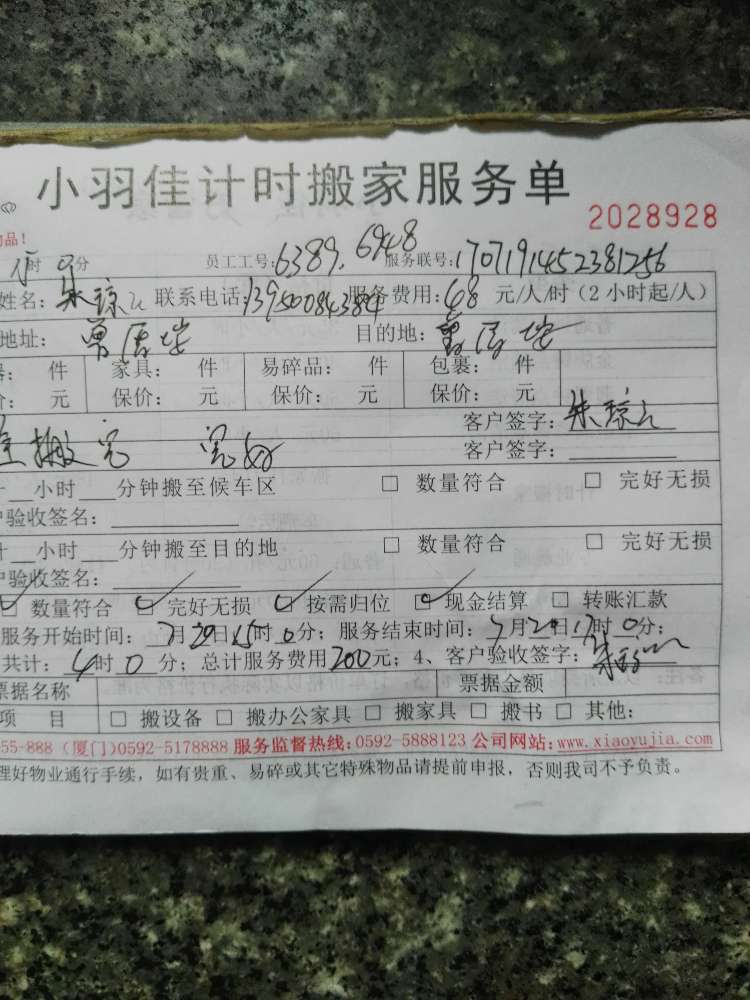 小羽佳计时搬家服务单
2028928
物品!
时 分 员工工号:6389.6948 服务联号:1707191452381256
姓名: 朱琼 联系电话:13950084384 服务费用:68元/人/时(2小时起/人)
地址: 曾厝垵 目的地: 曾厝垵
器: 件 家具: 件 易碎品: 件 包裹: 件
价: 元 保价: 元 保价: 元 保价: 元
客户签字: 朱琼
搬完 完好 客户签字:
计__小时__分钟搬至候车区 □ 数量符合 □ 完好无损
户验收签名:
计__小时__分钟搬至目的地 □ 数量符合 □ 完好无损
户验收签名:
☑ 数量符合 ☑ 完好无损 ☑ 按需归位 ☑ 现金结算 □ 转账汇款
服务开始时间: 7月20日15时0分; 服务结束时间: 7月20日17时0分;
共计: 4时0分; 总计服务费用200元; 4、客户验收签字:
票据名称 票据金额
项 目 □ 搬设备 □ 搬办公家具 □ 搬家具 □ 搬书 □ 其他:
55-888 (厦门)0592-5178888 服务监督热线:0592-5888123 公司网站:www.xiaoyujia.com
理好物业通行手续,如有贵重、易碎或其它特殊物品请提前申报,否则我司不予负责。